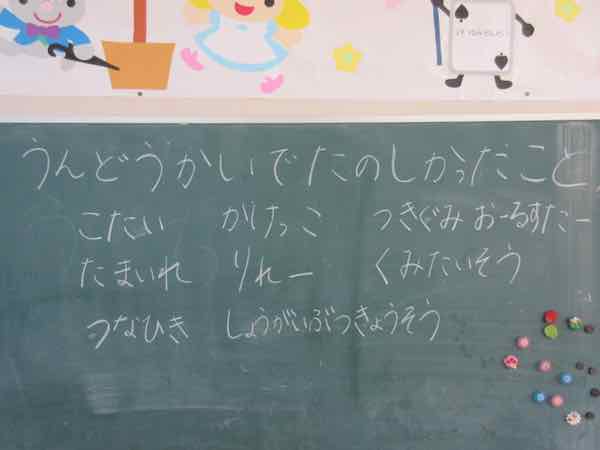 うんどうかいでたのしかったこと
こたい　がけっこ　つきぐみ おーるすたー
たまいれ　りれー　くみたいそう
つなひき　しょうがいぶつきょうそう